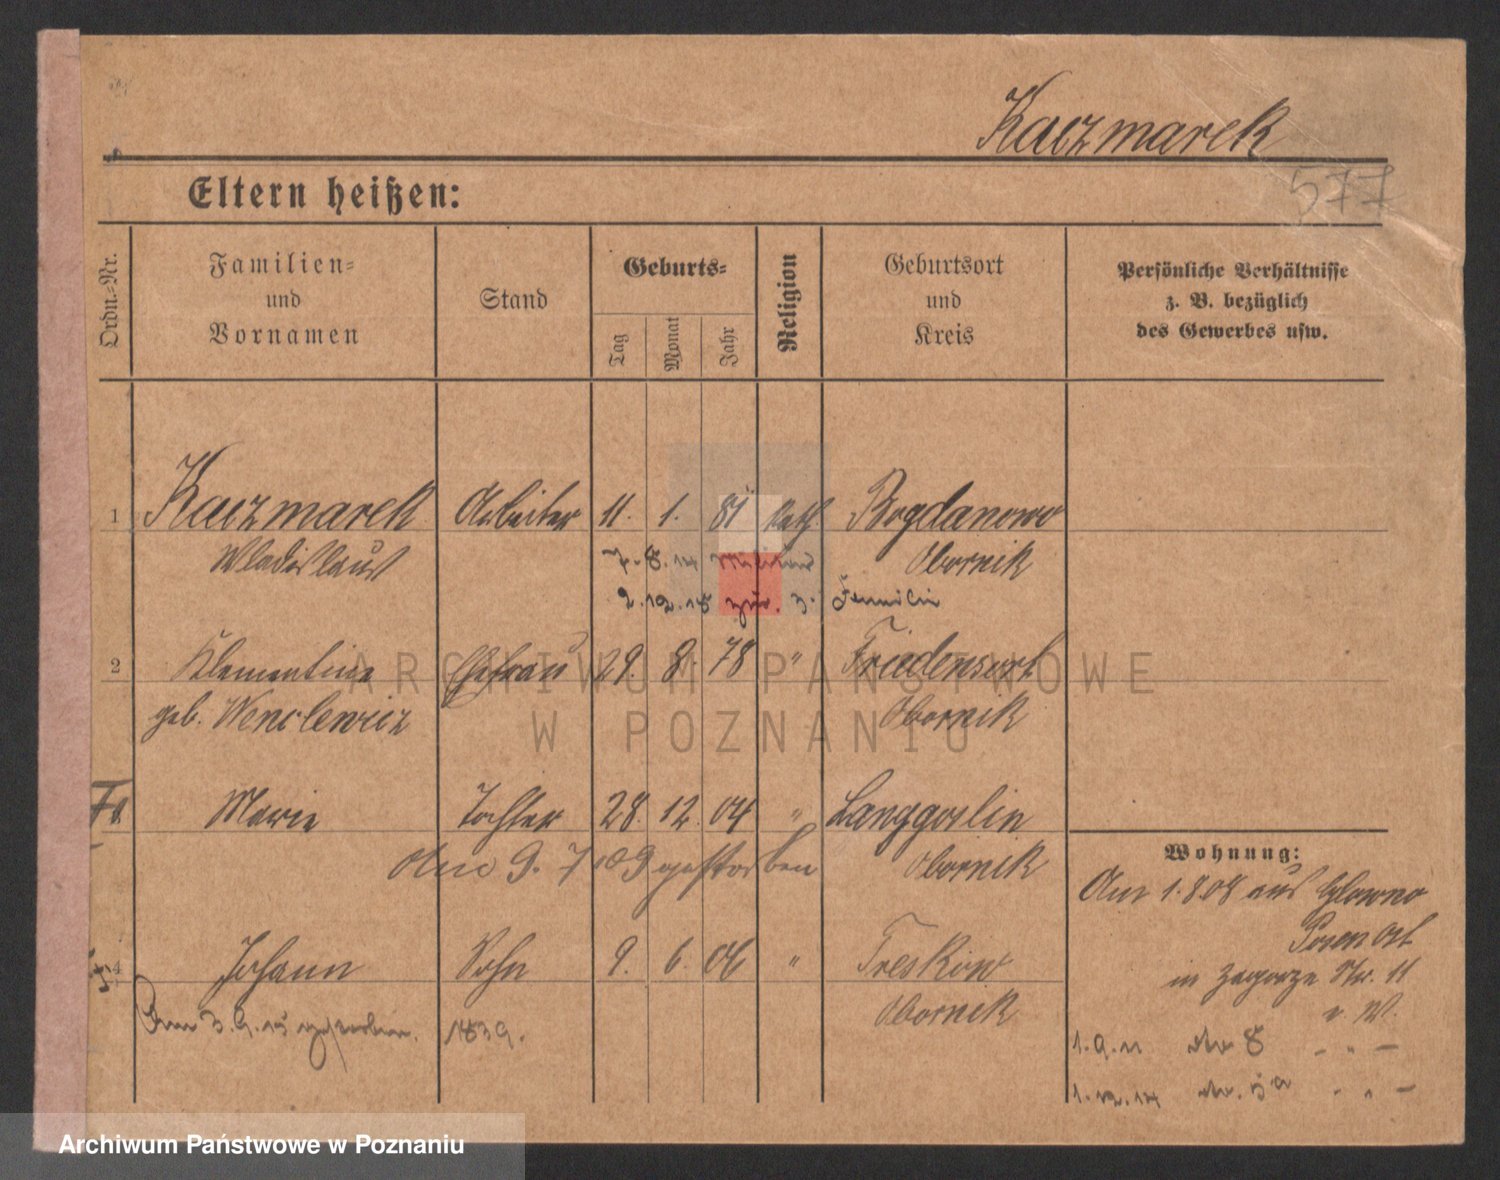 Kaczmarek
577
Eltern heißen:
Ordn.-Nr.
Familien- und Vornamen
Stand
Geburts-
Tag
Monat
Jahr
Religion
Geburtsort und Kreis
Persönliche Verhältnisse z. B. bezüglich des Gewerbes usw.
1 Kaczmarek Arbeiter 11. 1. 81 kath. Bogdanowo
Wladislaus Obornik
7.8.14 Militär
2.12.18 zur. z. Familie
2 Klementine Ehefrau 29. 8. 78 " Friedensort
geb. Wenclewicz Obornik
Marie Tochter 28. 12. 04 " Langgoslin
Am 9. 7. 09 gestorben Obornik
4 Johann Sohn 9. 6. 06 " Treskow
Obornik
Am 3.9.15 gestorben. 1839.
Wohnung:
Am 1.8.08 aus Glowno
Posen Ost
in Zagorze Nr. 11
1.9.11 Nr 8 - " -
1.12.14 Nr. 5a - " -
ARCHIWUM PAŃSTWOWE
W POZNANIU
Archiwum Państwowe w Poznaniu